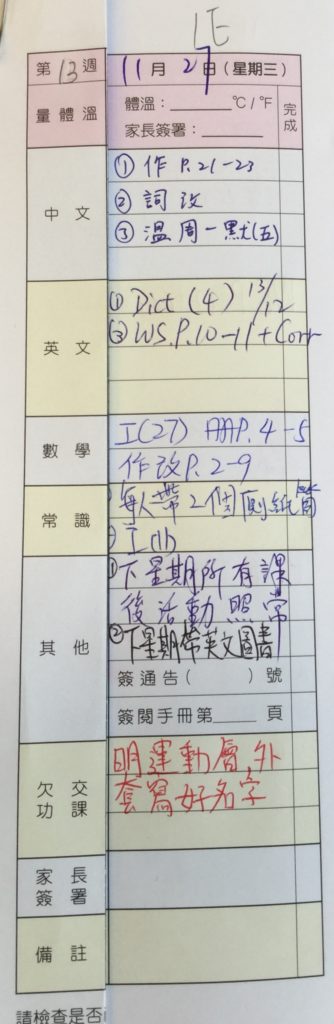 1E
第13週 11月27日(星期三)
量體溫 體溫：______ °C/°F 完成
家長簽署：______
中文
① 作 P.21-23
② 詞改
③ 溫周一默(五)
英文
① Dict (4) 13/12
② WS.P.10-11 + Corr
數學
工(27) AAP.4-5
作改P.2-9
常識
每人帶2個廁紙筒
工(11)
其他
① 下星期所有課
後活動照常
② 下星期帶英文圖書
簽通告( )號
簽閱手冊第____頁
欠交功課
明運動層,外
套寫好名字
家長簽署
備註
請檢查是否